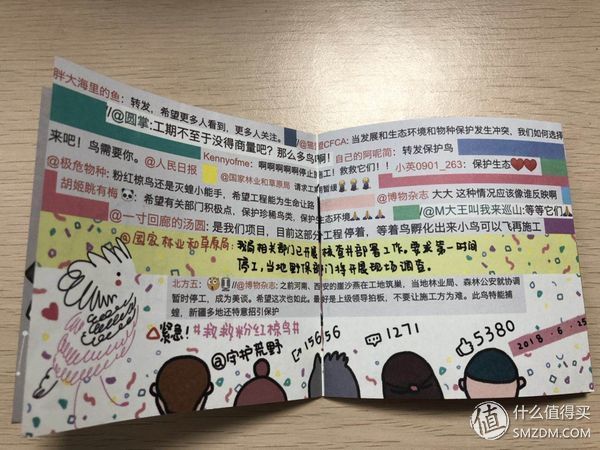 胖大海里的鱼：转发，希望更多人看到，更多人关注。
CFCA：当发展和生态环境和物种保护发生冲突，我们如何选择
//@圆掌：工期不至于没得商量吧？那么多鸟啊！
自己的阿呢简：转发保护鸟
来吧！鸟需要你。@人民日报
Kennyofme：啊啊啊啊啊停止
工！救救它们！！
小英0901_263：保护生态❤❤
@极危物种：粉红椋鸟还是灭蝗小能手，希望工程能为生命让路
@国家林业和草原局 请求
暂缓
@博物杂志 大大 这种情况应该像谁反映啊
胡姬眺有梅
希望有关部门积极点，保护珍稀鸟类，保护生态环境
//@M大王叫我来巡山：等等它们
@一寸回廊的汤圆：是我们项目，目前这部分工程停着，等着鸟孵化出来小鸟可以飞再施工
@国家林业和草原局：我局相关部门已开展核查并部署工作，要求第一时间
停工，当地野保部门将开展现场调查。
北方五：//@博物杂志：之前河南、西安的崖沙燕在工地筑巢，当地林业局、森林公安就协调
暂时停工，成为美谈。希望这次也如此。最好是上级领导拍板，不要让施工方为难。此鸟特能捕
蝗，新疆多地还特意招引保护
紧急！#救救粉红椋鸟#
@守护荒野
15656
1271
5380
2018.6.25
值 什么值得买
SMZDM.COM